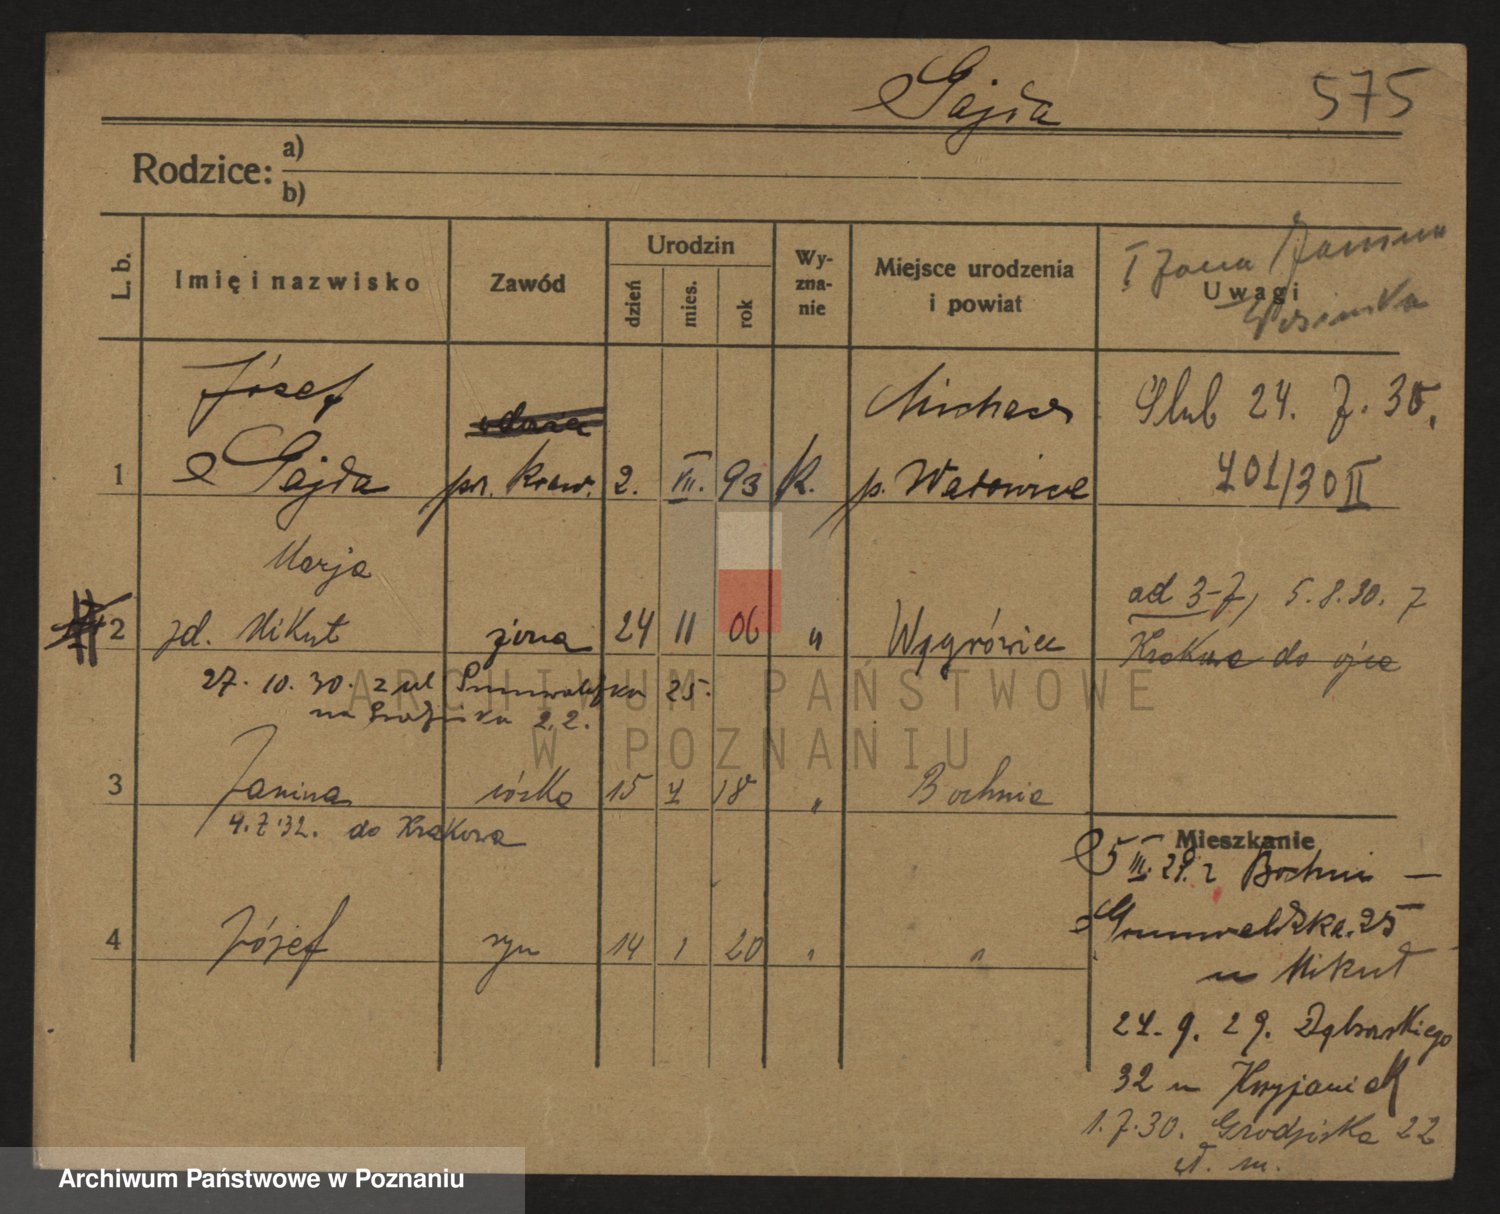 Gajda 575
Rodzice: a)
b)
L. b. Imię i nazwisko Zawód Urodzin dzień mies. rok Wy-zna-nie Miejsce urodzenia i powiat Uwagi
I żona Janina
Józef
Gajda
1 pr. kraw. 2. III. 93 k. p. Wadowice
Ślub 24. 7. 30.
701/30 II
Marja
2 zd. Mikut żona 24 11 06 " Wągrówiec
ad 3-7, 5.8.30. 7
Krakowa do ojca
27. 10. 30. z ul Grunwaldzka 25.
na Grodziska 22.
3 Janina córka 15 4 18 " Bochnia
4.7.32. do Krakowa
4 Józef syn 14 1 20 " "
Mieszkanie
5 III. 29. z Bochni —
Grunwaldzka 25
u Mikut
24. 9. 29. Dąbrowskiego
32 u
1.7.30. Grodziska 22
wł. m.
ARCHIWUM PAŃSTWOWE
W POZNANIU
Archiwum Państwowe w Poznaniu